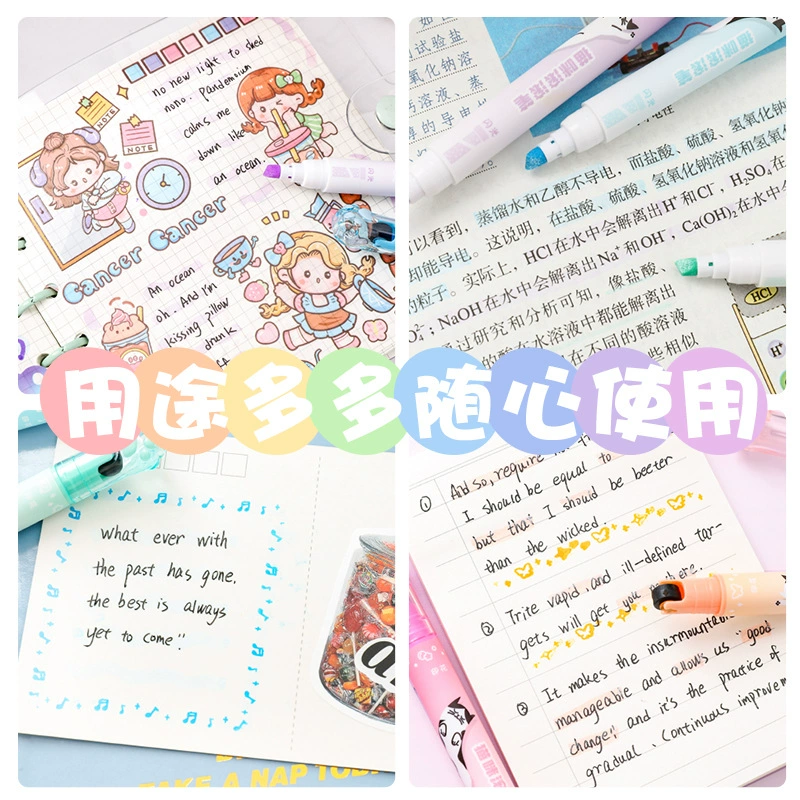 no new light to shed
nono. pandemonium
calms me
down like
an ocean.
NOTE
NOTE
Cancer Cancer
An ocean
oh. And I'm
kissing pillow
drunk
试验盐
氧化钠溶
溶液、蒸
的导电
猫咪滚滚笔
猫咪滚滚笔
以看到，蒸馏水和乙醇不导电，而盐酸、硫酸、氢氧化钠
却能导电。这说明，在盐酸、硫酸、氢氧化钠溶液和氢氧
的粒子。实际上，HCl在水中会解离出H⁺和Cl⁻，H₂SO₄在
O²⁻；NaOH在水中会解离出Na⁺和OH⁻，Ca(OH)₂在水中
通过研究和分析可知，像盐酸、
的酸在水溶液中都能解离出
在不同的酸溶液
些相似
HCl
H⁺
用途多多随心使用
what ever with
the past has gone.
the best is always
yet to come".
TAKE A NAP TODAY
① And so, require
I should be equal to
but that I should be beeter
than the wicked.
② Trite vapid, and ill-defined tar-
gets will get you nowhere.
③ It makes the insurmountable
manageable and allows us "good
change" and it's the practice of
gradual、Continuous improvem